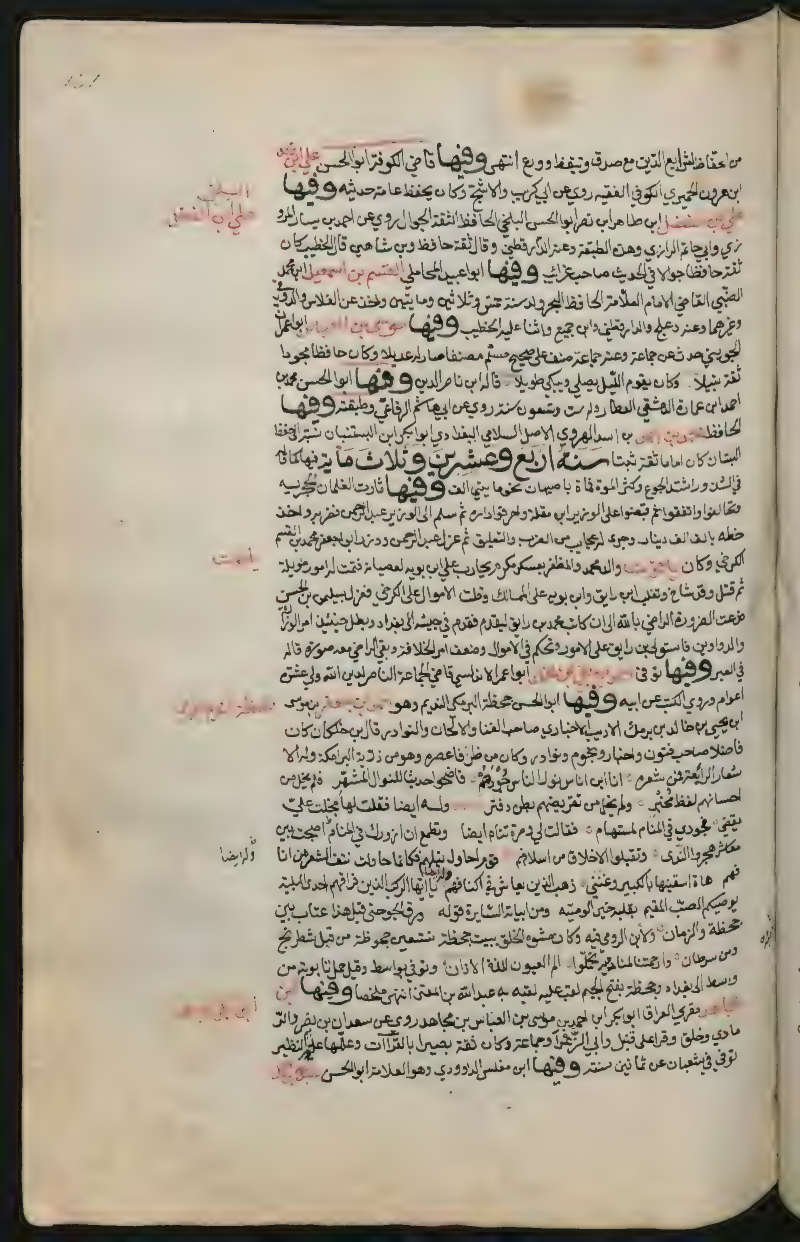 من الحفاظ لشرايع الدين مع صدق وتيقظ وورع انتهى وفيها قاضي الكوفة ابو الحسن علي بن محمد
ابن هرون الحميري الكوفي الفقيه روى عن ابي كريب والاشج وكان يحفظ عامة حديثه وفيها
علي بن الفضل ابن طاهر ابن نصر ابو الحسن البلخي الحافظ الثقة الجوال روى عن احمد بن سيار المرو
زي وابي حاتم الرازي وهذه الطبقة وعنه الدارقطني وقال ثقة حافظ وبن شاهين قال الخطيب كان
ثقة حافظا جوالا في الحديث صاحب غرائب وفيها ابو عبيد المحاملي القسم بن اسمعيل ابن محمد
الضبي القاضي الامام العلامة الحافظ ولد سنة ثمان وثلاثين ومايتين واخذ عن الفلاس والدورقي
وغيرهما وعنه دعلج والدارقطني وابن جميع واثنا عليه الخطيب وفيها موسى بن العباس ابو عمران
الجويني حدث عن جماعة وعنه جماعة صنف على صحيح مسلم مصنفا صار له عديلا وكان حافظا مجودا
ثقة نبيلا وكان يقوم الليل يصلي ويبكي طويلا قاله ابن ناصر الدين وفيها ابو الحسن محمد بن
احمد ابن عمارة الدمشقي العطار وله ست وتسعون سنة روى عن ابي هاشم الرفاعي وطبقته وفيها
الحافظ بن اسد الهروي الاصل السلامي البغدادي ابو بكر ابن البستنبان نسبة لحفظ
البستان كان اماما ثقة ثبتا سنة اربع وعشرين وثلاث ماية فيها كما قال
في الشذور اشتد الجوع وكثر الموت فمات باصبهان نحو مايتي الف وفيها ثارت الغلمان الحجرية
وتحالفوا واتفقوا ثم قبضوا على الوزير ابن مقلة واحرقوا داره ثم سلم الى الوزير عبد الرحمن فضربه واخذ
خطه بالف الف دينار وجرى له عجايب من الضرب والتعليق ثم عزل عبد الرحمن ووزر ابو جعفر محمد بن القسم
الكرخي وكان ياقوت والد محمد والمظفر بعسكر مكرم يحارب علي ابن بويه لعصيانه فتمت له امور طويلة
ثم قتل وقد شاخ وتغلب ابن رايق وابن بويه على الممالك وقلت الاموال على الكرخي فعزل بسليمن بن الحسن
فدعت الضرورة الراضي بالله الى ان كاتب محمد بن رايق ليقدم فقدم في جيشه الى بغداد وبطل حينئذ امر الوزارة
والدواوين فاستولى بن رايق على الامور وتحكم في الاموال وضعف امر الخلافة وبقي الراضي معه صورة قاله
في العبر وفيها توفي احمد بن بقي بن مخلد ابو عمر الاندلسي قاضي الجماعة الناصر لدين الله ولي عشرة
اعوام وروى الكتب عن ابيه وفيها ابو الحسن جحظة البرمكي النديم وهو احمد بن جعفر بن موسى
ابن يحيى بن خالد بن برمك الاديب الاخباري صاحب الغنا والالحان والنوادر قال بن خلكان كان
فاضلا صاحب فنون واخبار ونجوم ونوادر وكان من ظرفا عصره وهو من ذرية البرامكة وله الا
شعار الرائقة فمن شعره انا ابن اناس مول الناس جودهم فاضحوا حديثا للنوال المشهر فلم يخل من
احسانهم لفظ مخبر ولم يخل من تقريضهم بطن دفتر وله ايضا فقلت لها بخلت علي
يقضي فجودي في المنام لمستهام فقالت لي وصرت تنام ايضا وتطمع ان ازورك في المنام اصبحت بين
معاشر هجروا الندى وتقبلوا الاخلاق من اسلافهم قوم احاول نيلهم فكانما حاولت نتف الشعر من انا
فهم هات اسقنيها بالكبير وغنني ذهب الذين يعاش في اكنافهم يا ايها الركب الذين فراقهم احدى البلية
يوصيكم الصب المقيم بقلبه خير الوصية ومن ابياته السايرة قوله ورق الجو حتى قيل هذا عتاب بين
جحظة والزمان ولابن الرومي فيه وكان مشوه الخلق نبيت جحظة يستعير جحوظه من فيل شطرنج
ومن سرطان وارحمتا لمنادميه تحملوا الم العيون للذة الاذان وتوفي بواسط وقيل حمل تابوته من
واسط الى بغداد وجحظة بفتح الجيم لقب عليه لقبه به عبد الله بن المعتز انتهى ملخصا وفيها بن
مجاهد مقرئ العراق ابو بكر ابن احمد بن موسى بن العباس بن مجاهد روى عن سعدان بن نصر والر
مادي وخلق وقرا على قنبل وابي الزعراء وجماعة وكان ثقة بصيرا بالقراآت وعللها عديم النظير
توفي في شعبان عن ثمانين سنة وفيها ابن مغلس الداوودي وهو العلامة ابو الحسن
البلخي
علي ابن الفضل
ياقوت
جحظة النديم البرمكي
وله ايضا
ابن مجاهد